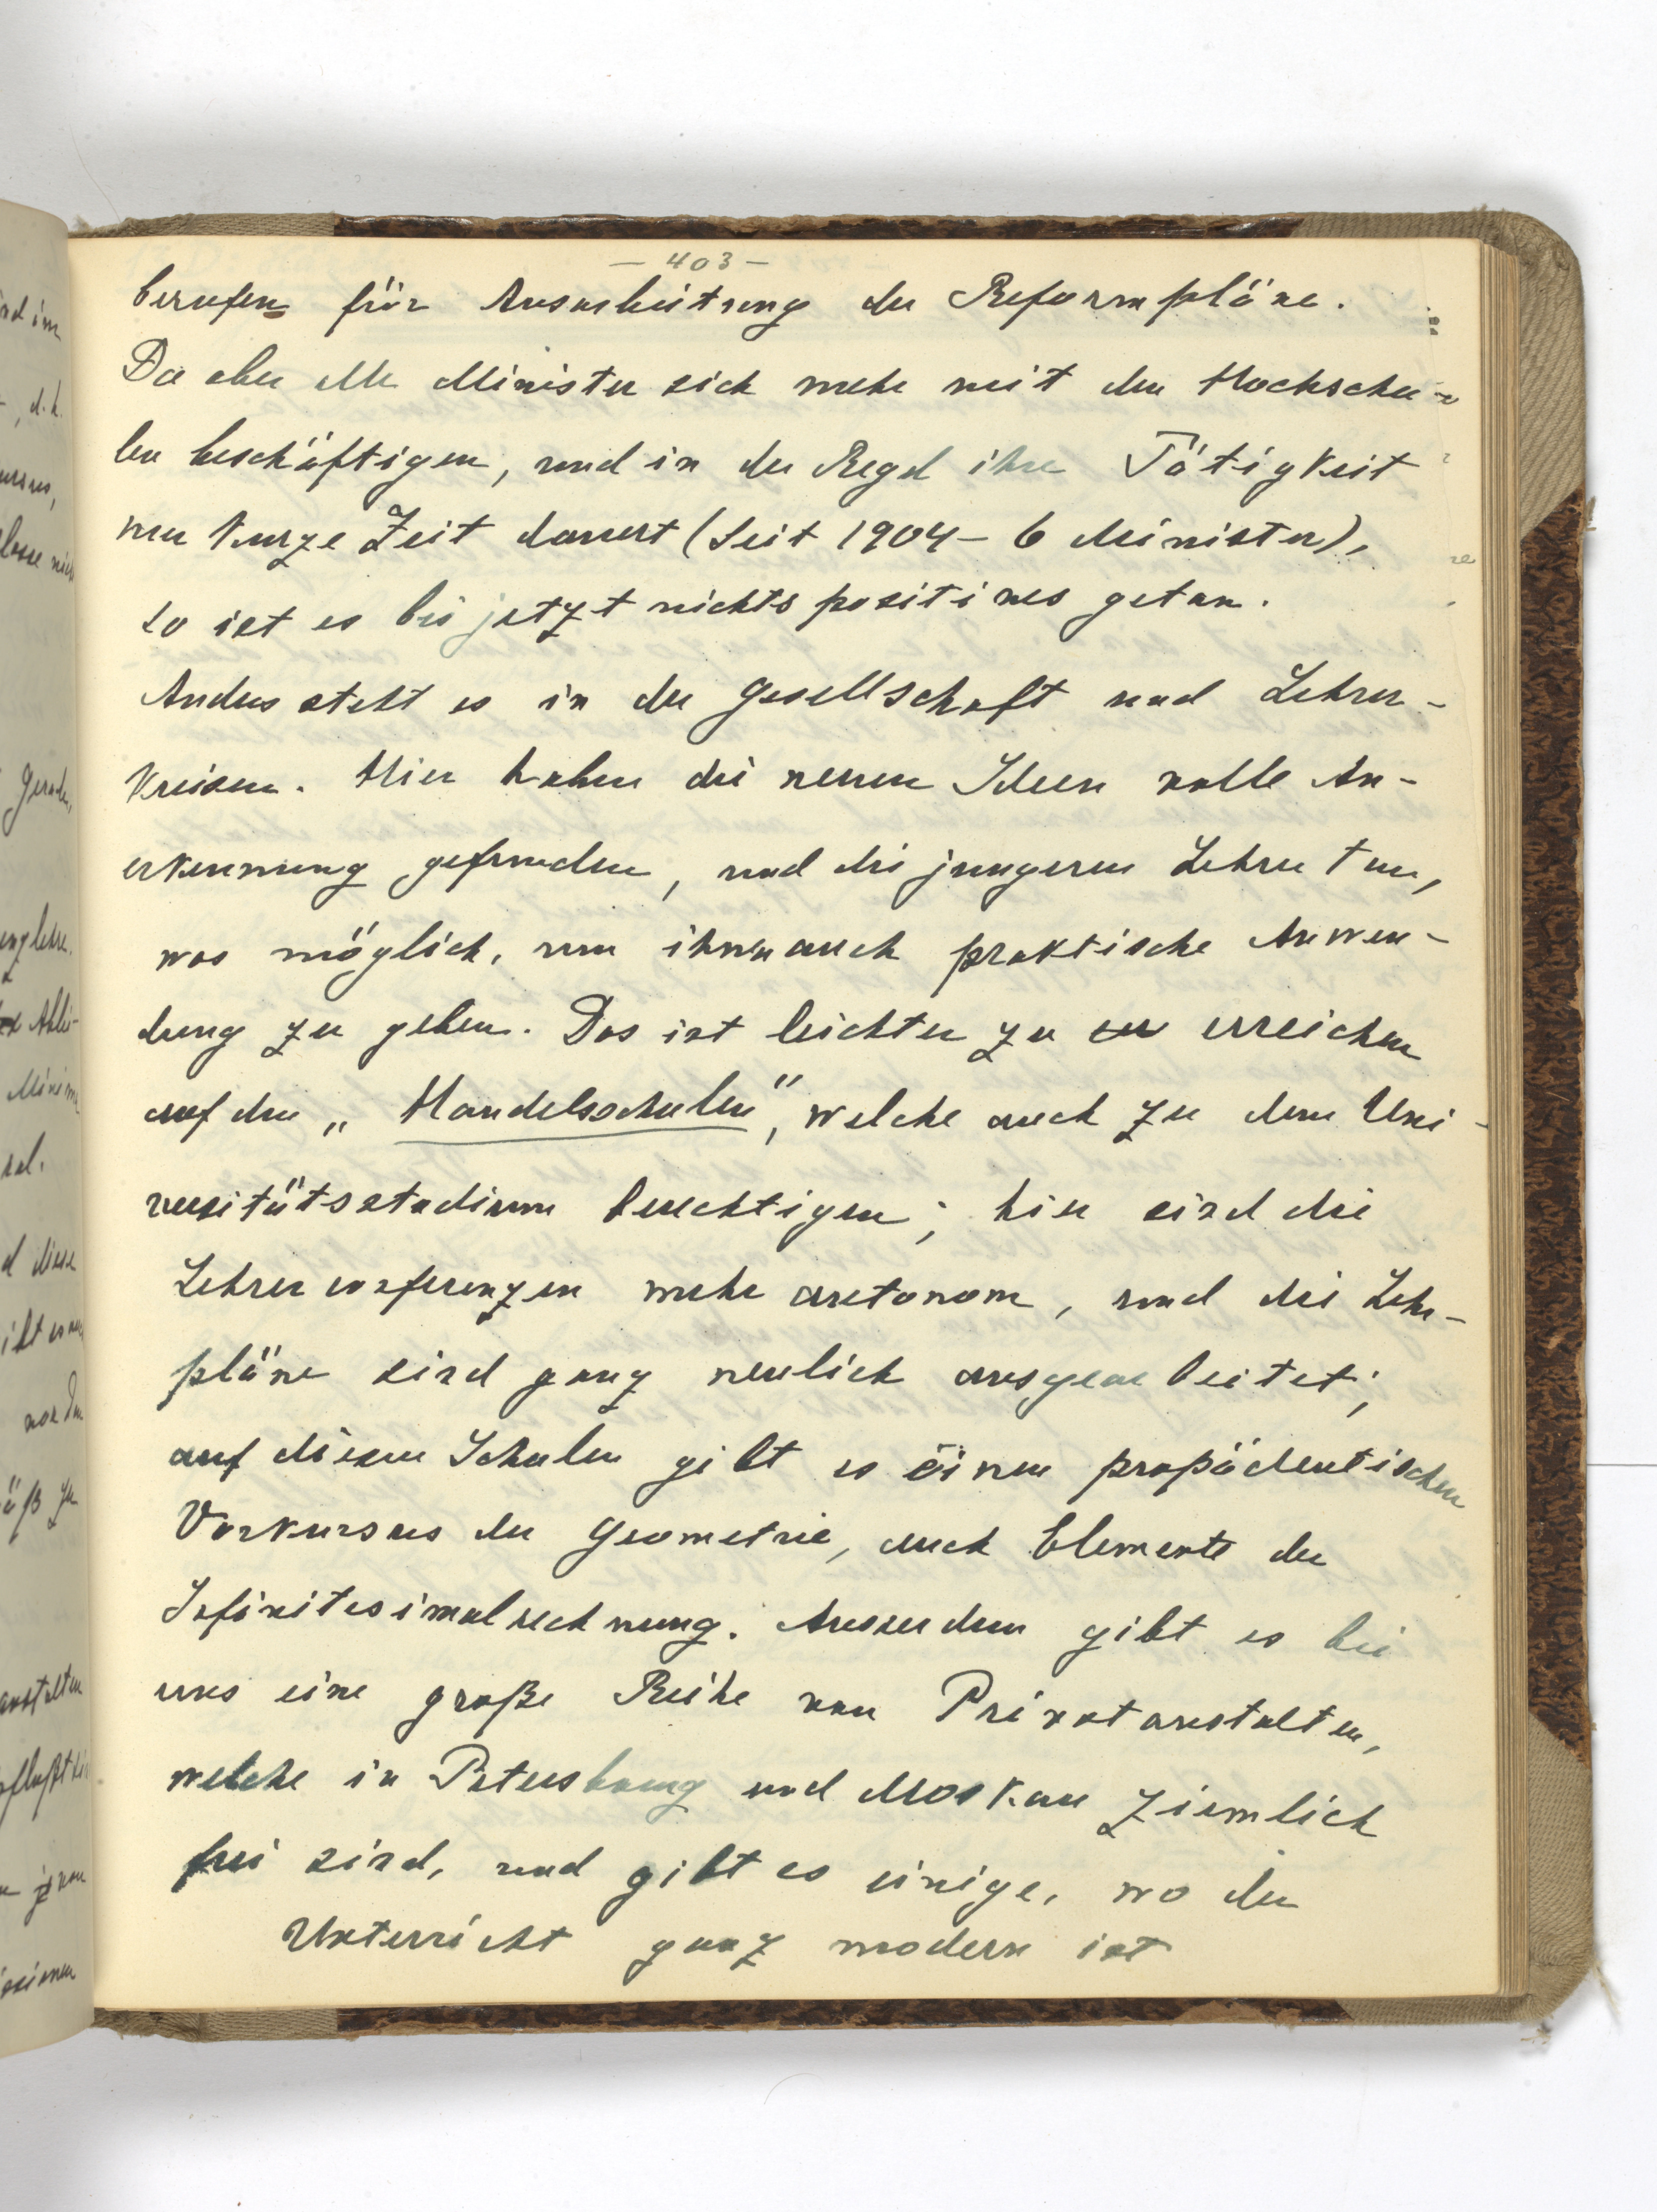 — 403 —
berufen für Ausarbeitung der Reformpläne.
Da aber alle Minister sich mehr mit den Hochschu-
len beschäftigen, und in der Regel ihre Tätigkeit
nur kurze Zeit dauert (Seit 1904 – 6 Minister),
so ist es bis jetzt nichts positives getan.
Anders steht es in der Gesellschaft und Lehrer-
kreisen. Hier haben die neuen Ideen volle An-
erkennung gefunden, und die jungeren Lehrer tun,
was möglich, um ihnen auch praktische Anwen-
dung zu geben. Das ist leichter zu erreichen
auf den „Handelsschulen", welche auch zu dem Uni-
versitätsstudium berechtigen; hier sind die
Lehrerconferenzen mehr autonom, und die Lehr-
pläne sind ganz neulich ausgearbeitet;
auf diesen Schulen gibt es einen propädeutischen
Vorkursus der Geometrie, auch Elemente der
Infinitesimalrechnung. Ausserdem gibt es bei
uns eine große Reihe von Privatanstalten,
welche in Petersburg und Moskau ziemlich
frei sind, und gibt es einige, wo der
Unterricht ganz modern ist